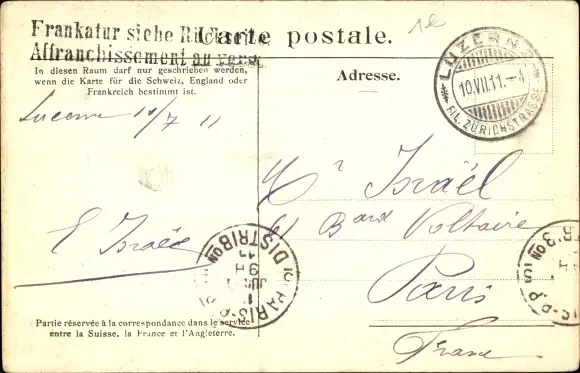 Frankatur siehe Rückseite
Carte postale.
Affranchissement au verso
In diesen Raum darf nur geschrieben werden,
wenn die Karte für die Schweiz, England oder
Frankreich bestimmt ist.
Adresse.
1e
LUZERN
10.VII.11.-4
FIL. ZÜRICHSTRASSE
Lucerne 10/7 11
Mr Israël
61 Bard Voltaire
Paris
France
E Israël
PARIS
DISTRIBON
9H
11
Partie réservée à la correspondance dans le service
entre la Suisse, la France et l'Angleterre.